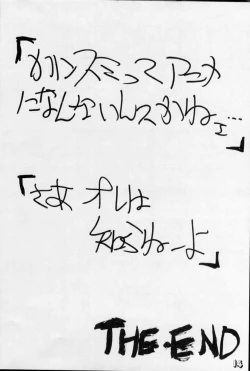 「カリンスミってアニメ
になんないんスかねェ…」
「さあ オレは
知らねーよ」
THE・END